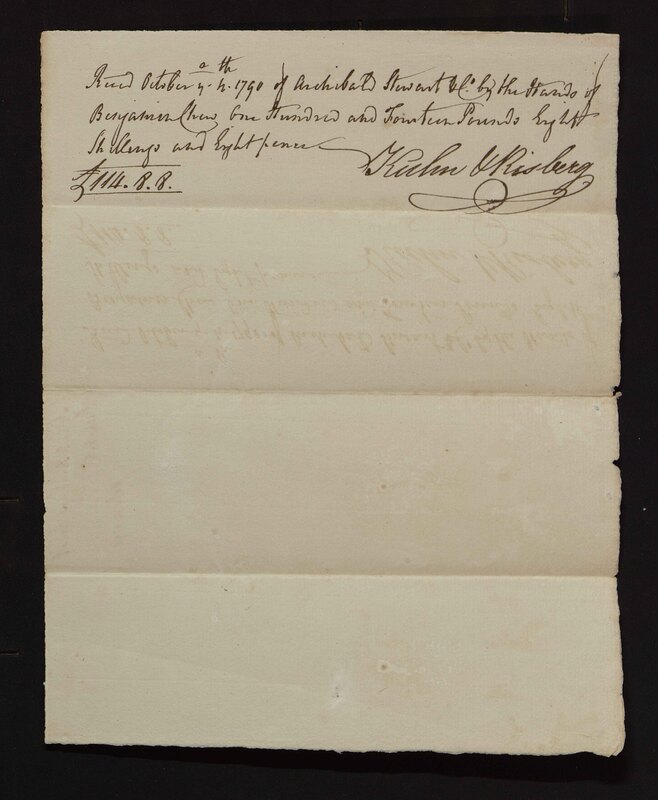 Recd October 4th 1790 of Archibald Stewart & Co. by the Hands of
Benjamin Chew One Hundred and Fourteen Pounds Eight
Shillings and Eight pence
£114.8.8.
Kuhn & Risberg